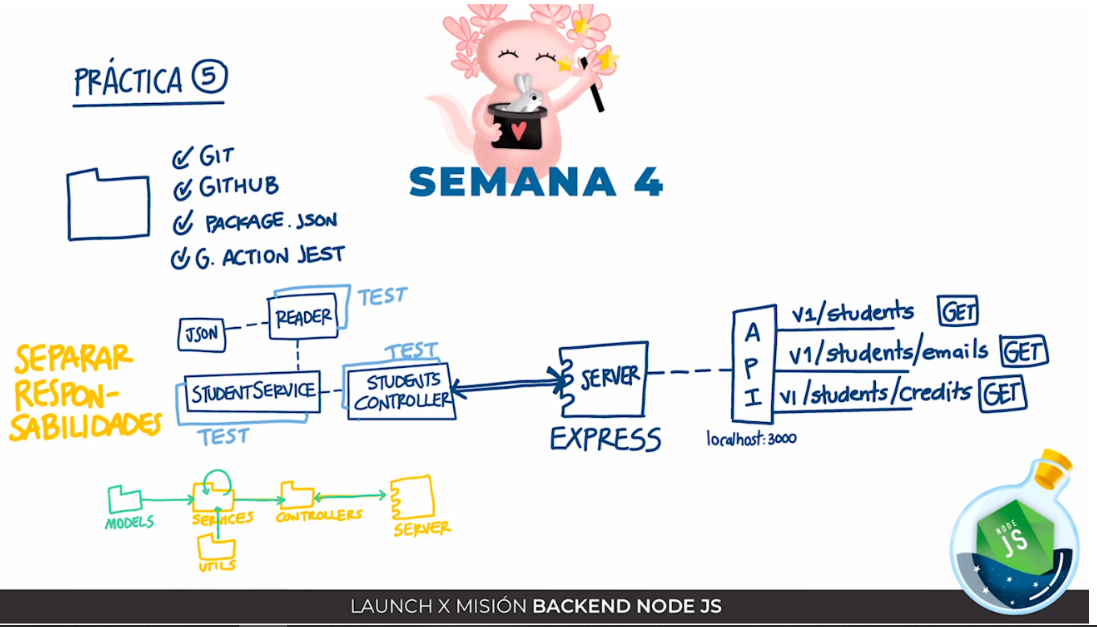 PRÁCTICA 5
GIT
GITHUB
PACKAGE.JSON
G. ACTION JEST
SEMANA 4
SEPARAR
RESPON-
SABILIDADES
JSON
READER
TEST
STUDENTSERVICE
TEST
TEST
STUDENTS
CONTROLLER
SERVER
EXPRESS
API
localhost:3000
v1/students GET
v1/students/emails GET
v1/students/credits GET
MODELS
SERVICES
CONTROLLERS
SERVER
UTILS
NODE
JS
LAUNCH X MISIÓN BACKEND NODE JS